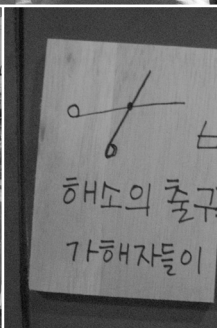 해소의 출구
가해자들이